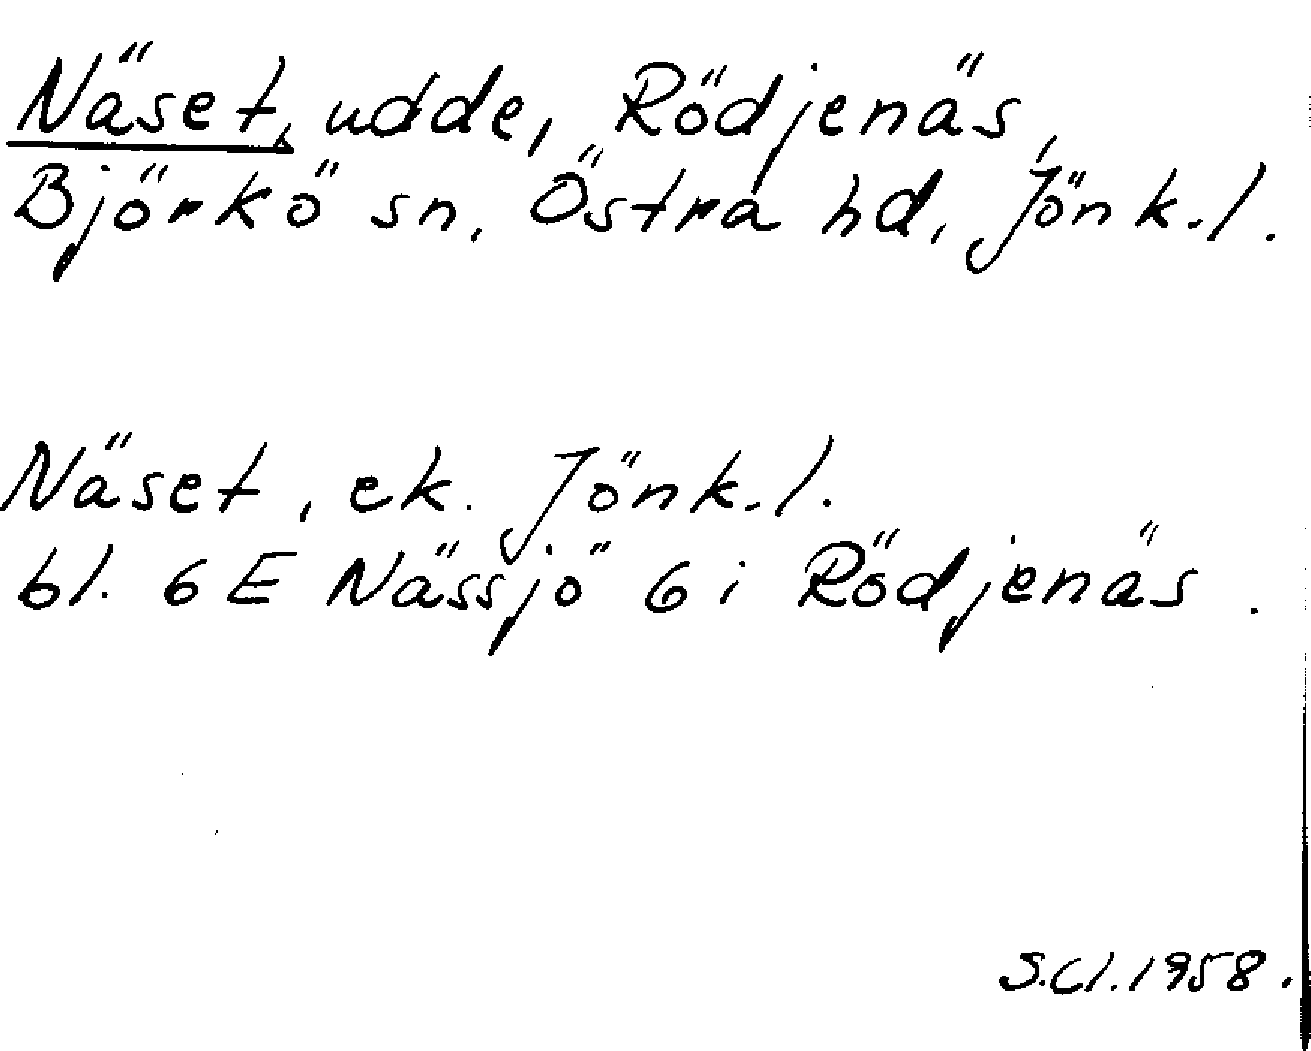 Näset, udde, Rödjenäs,
Björkö sn, Östra hd, Jönk.l.
Näset, ek. Jönk.l.
bl. 6 E Nässjö 6 i Rödjenäs.
S.Cl. 1958.